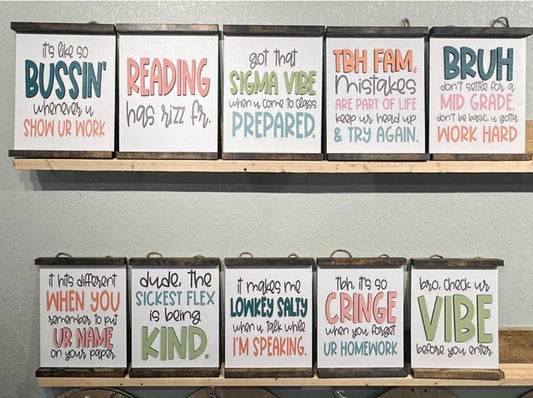 it's like so
BUSSIN'
whenever u
SHOW UR WORK
READING
has rizz fr.
got that
SIGMA VIBE
when u come to class
PREPARED.
TBH FAM,
Mistakes
ARE PART OF LIFE
keep ur head up
& TRY AGAIN.
BRUH
don't settle for a
MID GRADE.
don't be basic u gotta
WORK HARD
it hits different
WHEN YOU
remember to put
UR NAME
on your paper.
dude, the
SICKEST FLEX
is being
KIND.
it makes me
LOWKEY SALTY
when u talk while
I'M SPEAKING.
tbh it's so
CRINGE
when you forget
UR HOMEWORK
bro, check ur
VIBE
before you enter.